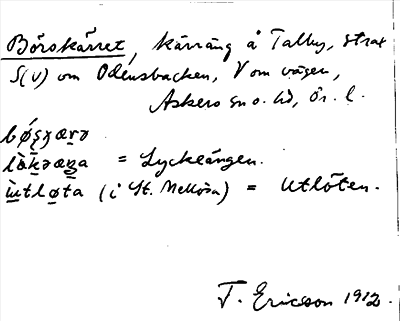 Börskärret, kärräng å Talby, strax
S(V) om Odensbacken, V om vägen,
Askers sn o. hd, Ör. l.
= Lyckeängen.
(i St. Mellösa) = Utlöten.
T. Ericson 1912.